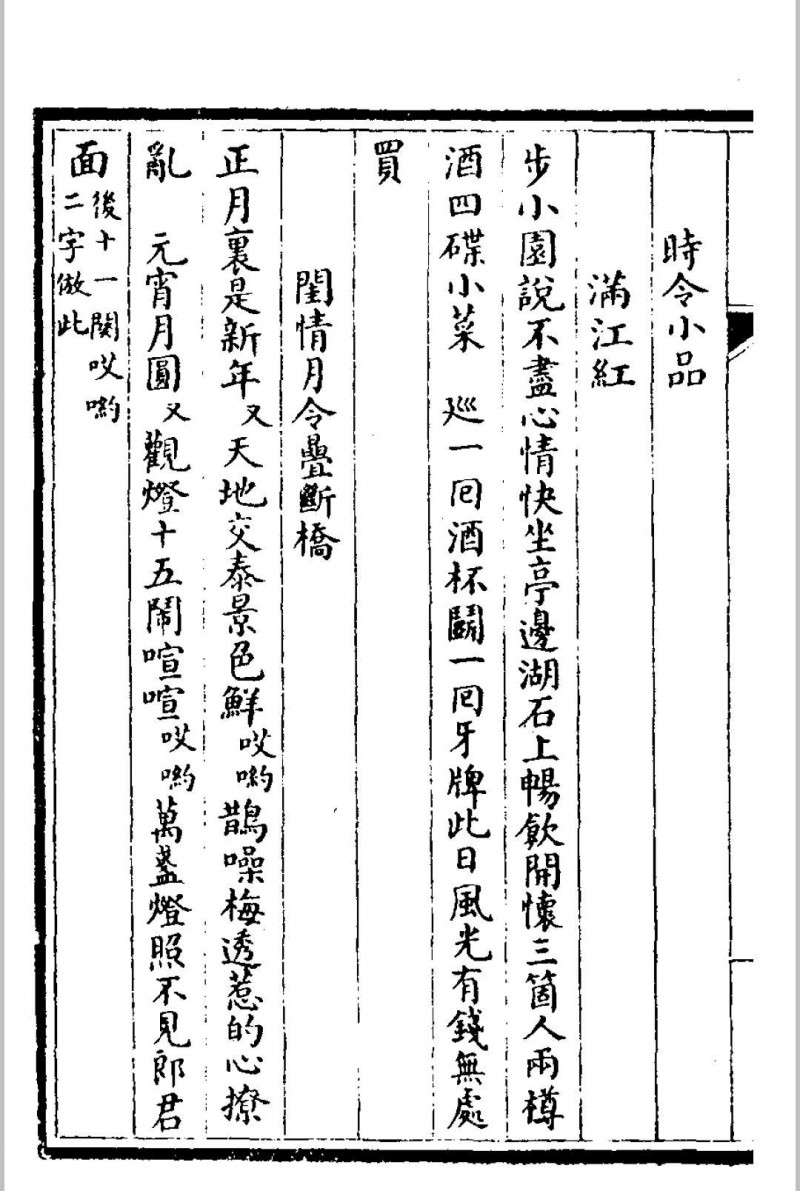 時令小品
滿江紅
步小園說不盡心情快坐亭邊湖石上暢飲開懷三箇人兩樽
酒四碟小菜 廵一囘酒杯鬪一囘牙牌此日風光有錢無處
買
閨情月令疊斷橋
正月裏是新年又天地交泰景色鮮哎喲鵲噪梅透惹的心撩
亂 元宵月圓又觀燈十五鬧喧喧哎喲萬盞燈照不見郎君
面後十一闋哎喲二字倣此